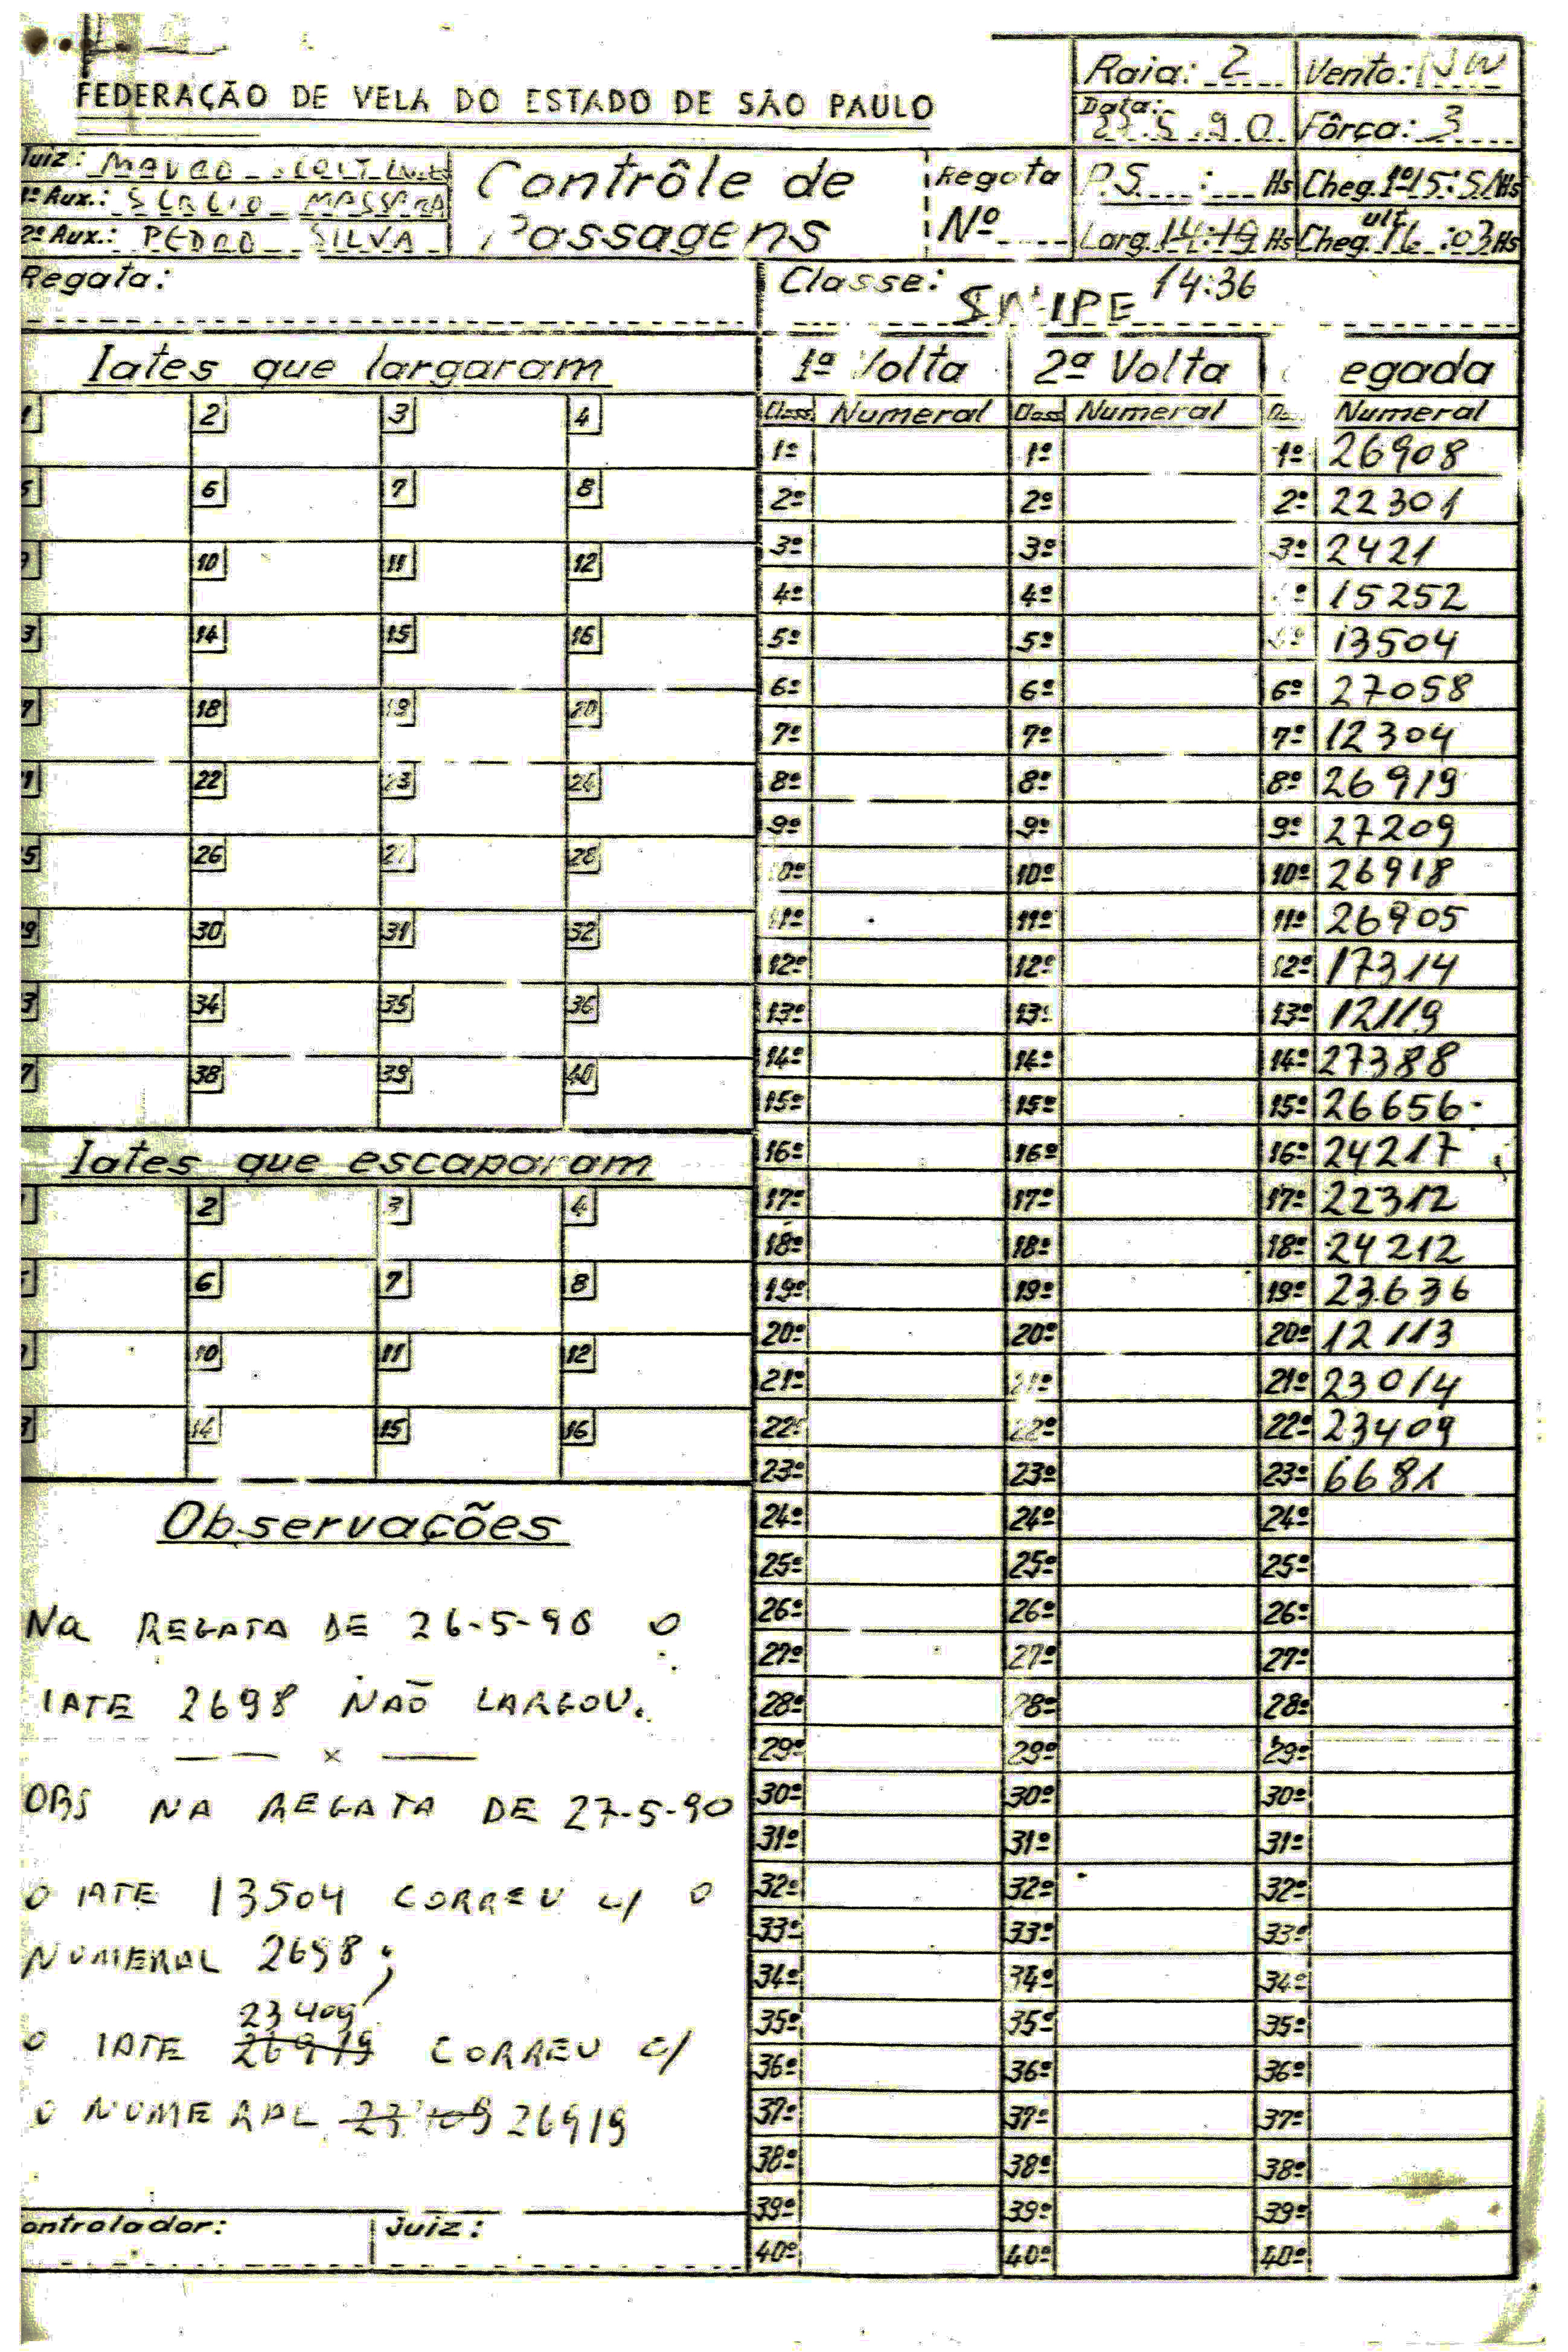 FEDERAÇÃO DE VELA DO ESTADO DE SÃO PAULO
Raia: 2 Vento: NW
Data: 27.5.90 Fôrça: 3
Juiz: MAURO
1º Aux.: SERGIO MASSERA
2º Aux.: PEDRO SILVA
Contrôle de
Passagens
Regata
Nº
P.S. : Hs Cheg. 1º 15:51 Hs
Larg. 14:19 Hs Cheg. ult. 16:03 Hs
Regata:
Classe: SNIPE 14:36
Iates que largaram
1 2 3 4
5 6 7 8
9 10 11 12
13 14 15 16
17 18 19 20
21 22 23 24
25 26 27 28
29 30 31 32
33 34 35 36
37 38 39 40
Iates que escaparam
1 2 3 4
5 6 7 8
9 10 11 12
13 14 15 16
Observações
NA REGATA DE 26-5-90 O
IATE 2698 NÃO LARGOU.
— x —
OBS NA REGATA DE 27-5-90
O IATE 13504 CORREU C/ O
NUMERAL 2698;
23409
O IATE 26919 CORREU C/
O NUMERAL 23409 26919
Controlador: Juiz:
1ª Volta 2ª Volta egada
Class. Numeral Class Numeral Numeral
1º 1º 1º 26908
2º 2º 2º 22301
3º 3º 3º 2421
4º 4º º 15252
5º 5º 5º 13504
6º 6º 6º 27058
7º 7º 7º 12304
8º 8º 8º 26919
9º 9º 9º 27209
10º 10º 10º 26918
11º 11º 11º 26905
12º 12º 12º 17314
13º 13º 13º 12119
14º 14º 14º 27388
15º 15º 15º 26656
16º 16º 16º 24217
17º 17º 17º 22312
18º 18º 18º 24212
19º 19º 19º 23636
20º 20º 20º 12113
21º 21º 21º 23014
22º 22º 22º 23409
23º 23º 23º 6681
24º 24º 24º
25º 25º 25º
26º 26º 26º
27º 27º 27º
28º 28º 28º
29º 29º 29º
30º 30º 30º
31º 31º 31º
32º 32º 32º
33º 33º 33º
34º 34º 34º
35º 35º 35º
36º 36º 36º
37º 37º 37º
38º 38º 38º
39º 39º 39º
40º 40º 40º